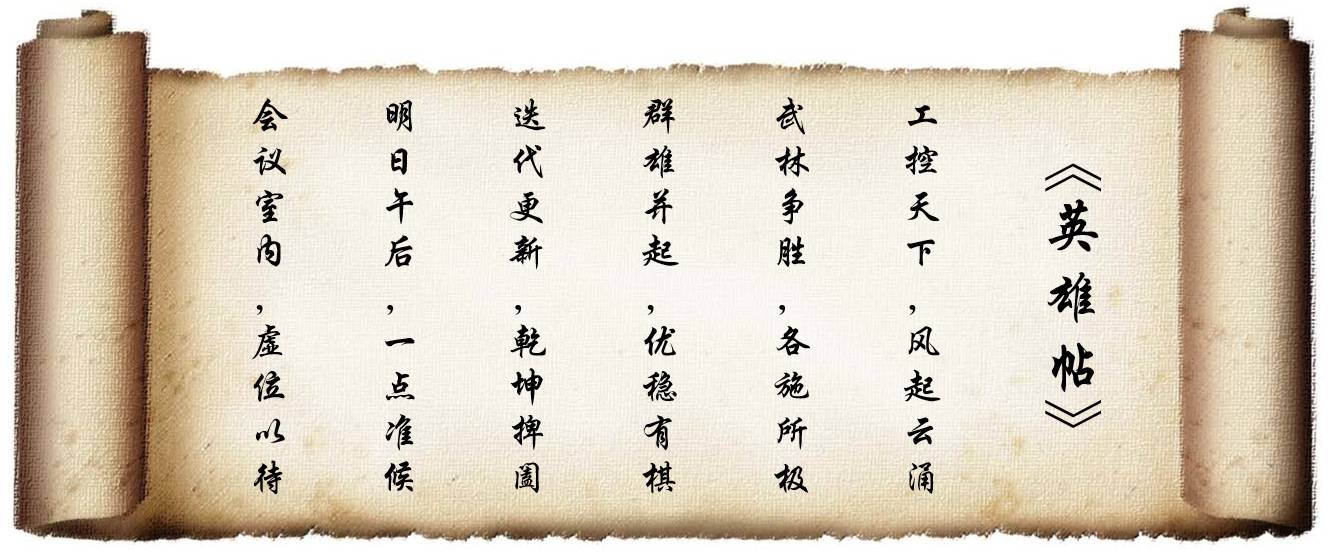 《英雄帖》
工控天下,风起云涌
武林争胜,各施所极
群雄并起,优稳有棋
迭代更新,乾坤捭阖
明日午后,一点准候
会议室内,虚位以待